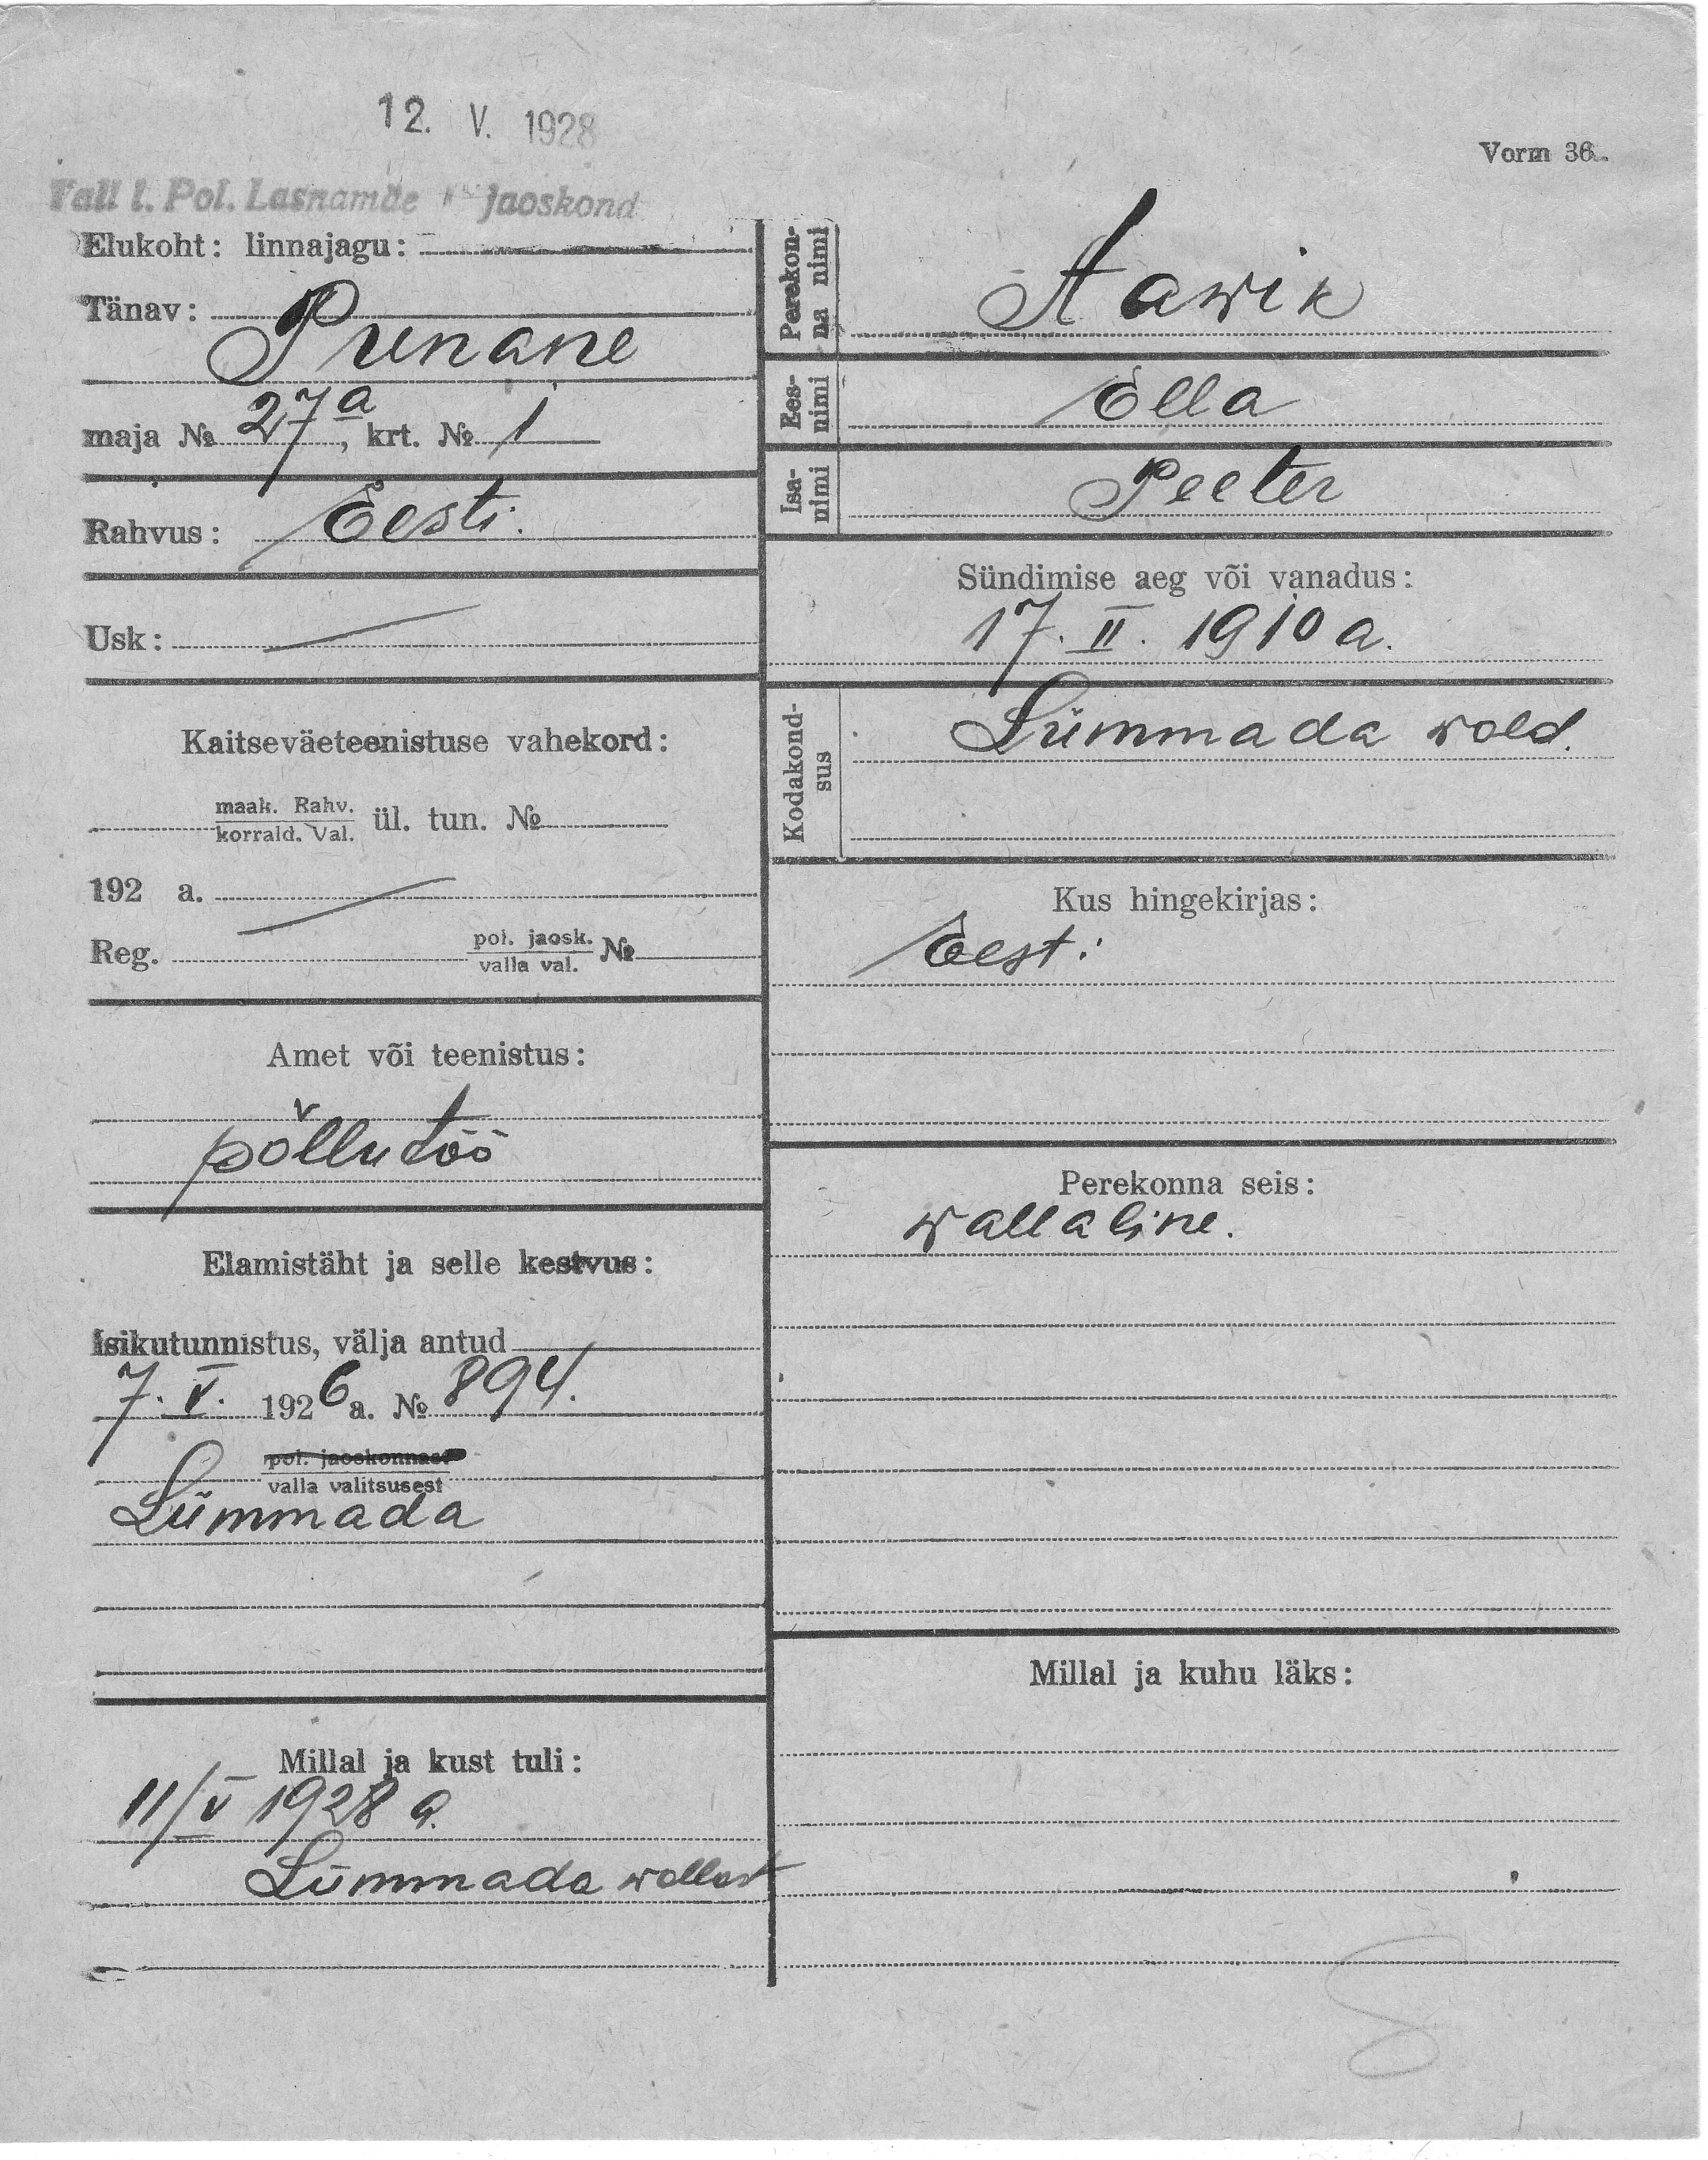 12. V. 1928
Vorm 36.
Tall l. Pol. Lasnamäe jaoskond
Elukoht: linnajagu:
Tänav:
Punane
maja № 27a, krt. № 1
Rahvus: Eesti.
Usk:
Kaitseväeteenistuse vahekord:
maak. Rahv.
korrald. Val. ül. tun. №
192 a.
Reg. pol. jaosk.
valla val. №
Amet või teenistus:
põllutöö
Elamistäht ja selle kestvus:
Isikutunnistus, välja antud
7. V. 1926 a. № 894.
pol. jaoskonnast
valla valitsusest
Lümmada
Millal ja kust tuli:
11/V 1928 a.
Lümmada wallast
Perekon-
na nimi
Aawik
Ees-
nimi
Ella
Isa-
nimi
Peeter
Sündimise aeg või vanadus:
17. II. 1910 a.
Kodakond-
sus
Lümmada wald.
Kus hingekirjas:
Eesti
Perekonna seis:
wallaline.
Millal ja kuhu läks: